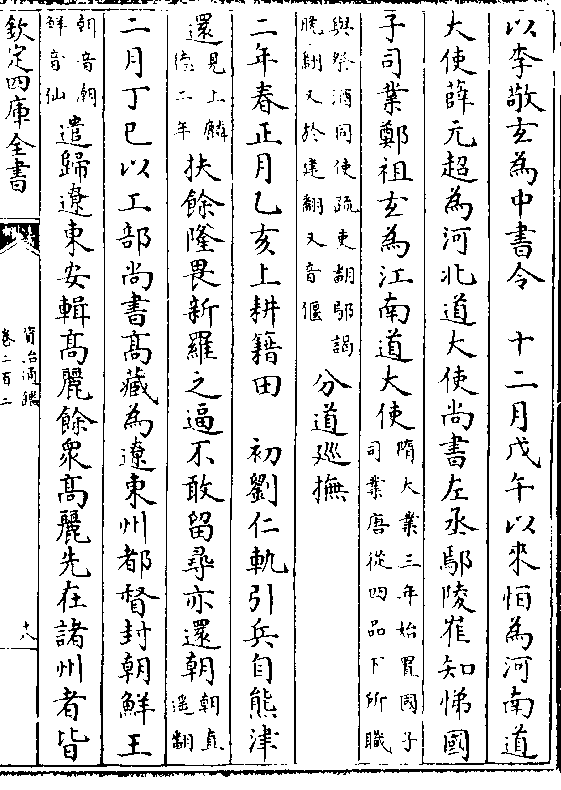 以李敬玄為中書令　十二月戊午以來恒為河南道
大使薛元超為河北道大使尚書左丞鄢陵崔知悌國
子司業鄭祖玄為江南道大使
隋大業三年始置國子
司業唐從四品下所職
與祭酒同使疏吏翻鄢謁
晚翻又於建翻又音偃
分道廵撫
二年春正月乙亥上耕籍田　初劉仁軌引兵自熊津
還
見上麟
德二年
扶餘隆畏新羅之逼不敢留尋亦還朝
朝直
遥翻
二月丁巳以工部尚書高藏為遼東州都督封朝鮮王
朝音潮
鮮音仙
遣歸遼東安輯高麗餘衆高麗先在諸州者皆
欽定四庫全書
資治通鑑
卷二百二
十八